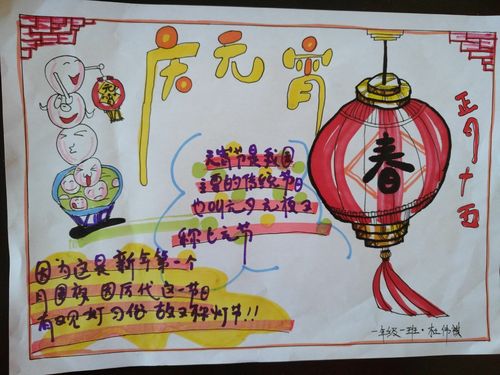 庆元宵
正月十五
春
元宵节是我国
主要的传统节日
也叫元夕元夜又
称上元节
因为这是新年第一个
月圆夜 因历代这一节日
有观灯习俗 故又称灯节!!
一年级一班·杜伟